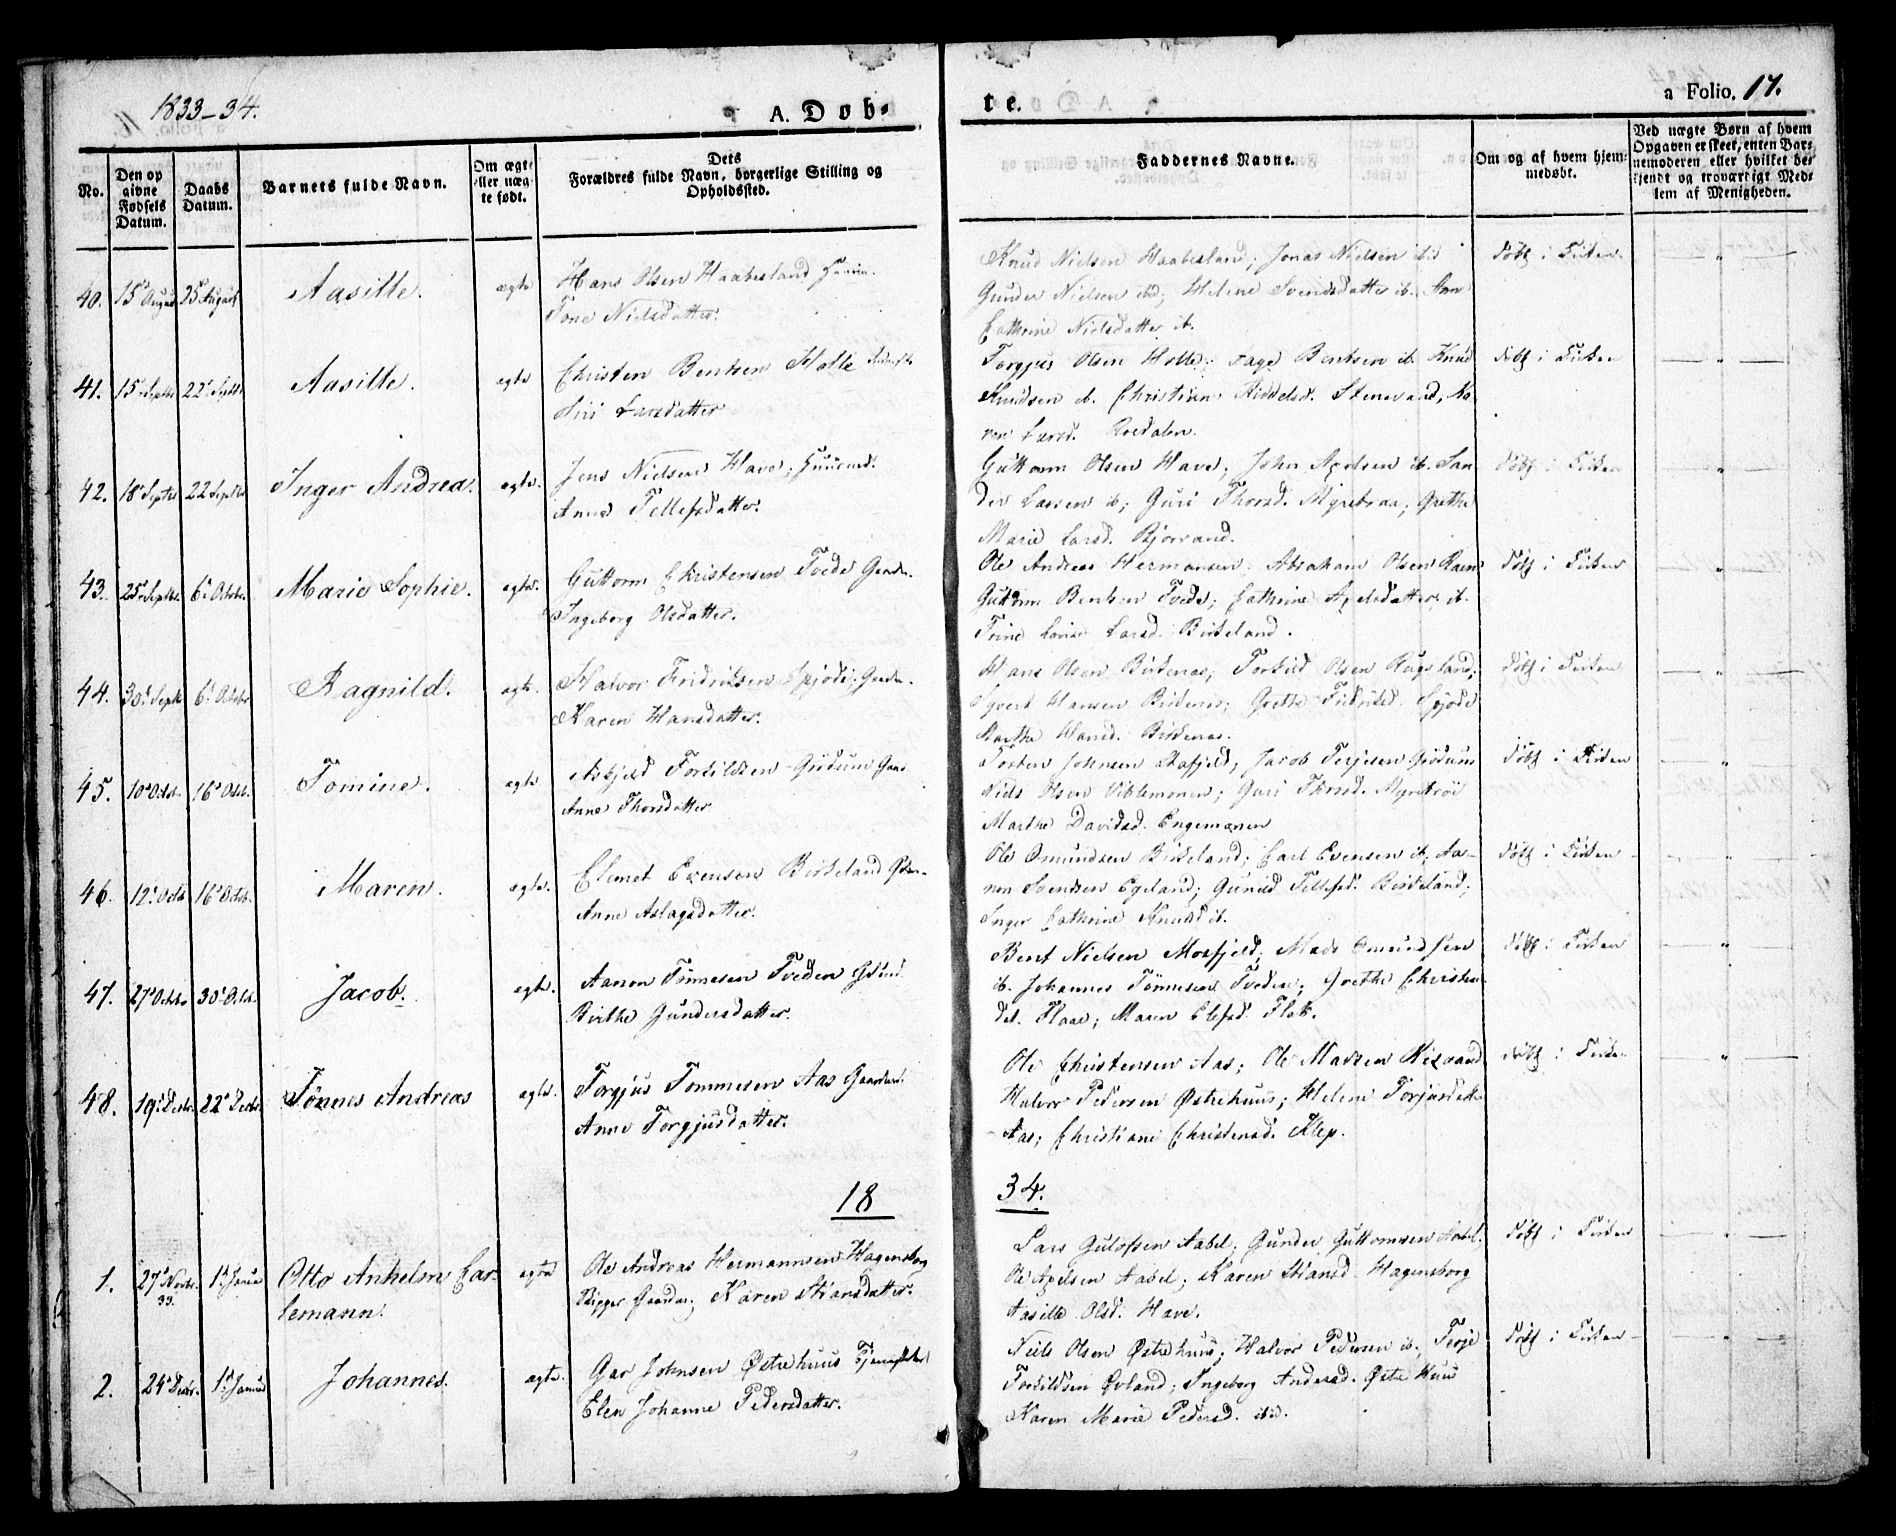 1833-34.
A. Døb-
te.
a Folio. 17.
No.
Den opgivne Fødsels Datum.
Daabs Datum.
Barnets fulde Navn.
Om ægte eller uægte født.
Dets Forældres fulde Navn, borgerlige Stilling og Opholdssted.
Faddernes Navne.
Om og af hvem hjemmedøbt.
Ved uægte Børn af hvem Opgaven er skeet, enten Barnemoderen eller hvilket bekjendt og troværdigt Medlem af Menigheden.
40. 15de August 25de August Aasille. ægte
Hans Olsen Haabesland
Tone Nielsdatter.
Knud Nielsen Haabesland; Jonas Nielsen ibid
Gunder Nielsen ibid; Helene Svendsdatter ib. Ane
Cathrine Nielsdatter ib.
Døbt i Kirken
41. 15de Septbr 22de Septbr Aasille. ægte
Christen Bentsen Holte
Siri Larsdatter
Torgjus Olsen Holte; Aage Bentsen ib. Knud
Knudsen ib. Christian Stenevand, Ka-
ren Larsd. Rosdalen.
Døbt i Kirken
42. 18de Septbr 22 Septbr Inger Andrea. ægte.
Jens Nielsen Have;
Anne Tellefsdatter.
Guttorm Olsen Have; John Apelsen ib. San-
der Larsen ib; Guri Thorsd. Myrebraa; Grethe
Marie Larsd. Bjorvand.
Døbt i Kirken
43. 25de Septbr. 6te Octobr. Marie Sophie. ægte.
Guttorm Christensen Tvede Gaardm.
Ingeborg Olsdatter.
Ole Andreas Hermansen; Abraham Olsen
Guttorm Bentsen Tvede; Cathrine Apelsdatter ib.
Trine Lovise Larsd. Birkeland.
Døbt i Kirken
44. 30de Septbr 6te Octobr Ragnild. ægte.
Halvor Fridriksen Spjøde; Gaardm.
Karen Hansdatter.
Hans Olsen Birkenes; Torkild Olsen Rugsland;
Syvert Hansen Birkenes; Grethe Fridriksd. Spjøde
Marthe Hansd. Birkenes.
Døbt i Kirken
45. 10de Octob. 16de Octob. Tomine. ægte
Torkildsen Gjødum
Anne Thorsdatter
Torben Johnsen Aasfjeld; Jacob Terjesen Gjødum
Niels Olsen Viblemonen; Guri Thorsd. Myrebrøi
Marthe Davidsd. Engemonen
Døbt i Kirken
46. 12te Octb 16de Octob. Maren. ægte.
Clemet Evensen Birkeland
Anne Aslagsdatter.
Ole Omundsen Birkeland; Carl Evensen ib; Aa-
nen Svendsen Egeland; Gunild Tellefsd. Birkeland;
Inger Cathrine Knudsd ib.
Døbt i Kirken
47. 27de Octobr 30te Octb. Jacob. ægte.
Aanon Tønnesen Tveden
Birthe Gundersdatter.
Bent Nielsen Mosfjeld; Mads Omundsen
ib. Johannes Tønnesen Tveden; Grethe Christen-
dat. Flaae; Maren Elefsd. Flak.
Døbt i Kirken
48. 19de Decbr. 22de Decbr. Tønnes Andreas ægte.
Torgjus Tommesen Aas Gaardm.
Anne Torgjusdatter.
Ole Christensen Aas; Ole Madsen
Halvor Pedersen Østrehuus; Helene Torjusdatt
Aas; Christiane Christensd. Klep.
Døbt i Kirken
18
34.
1. 27de Novbr. 33. 1ste Januar Otto Anhelm Car-
lemann. ægte
Ole Andreas Hermannsen Hagensborg
Skipper Gaardm; Karen Stiansdatter.
Lars Gulofsen Aabel; Gunder Guttormsen Aabel;
Ole Apelsen Aabel; Karen Stiansd. Hagensborg
Aasille Olsd. Have.
Døbt i Kirken
2. 24de Decbr. 1ste Januar Johannes. ægte.
Gar Johnsen Østrehuus
Elen Johanne Pedersdatter.
Niels Olsen Østrehuus; Halvor Pedersen ib; Terje
Torkildsen Øvland; Ingeborg Andersd. Østrehuus
Karen Marie Pedersd. ibid.
Døbt i Kirken